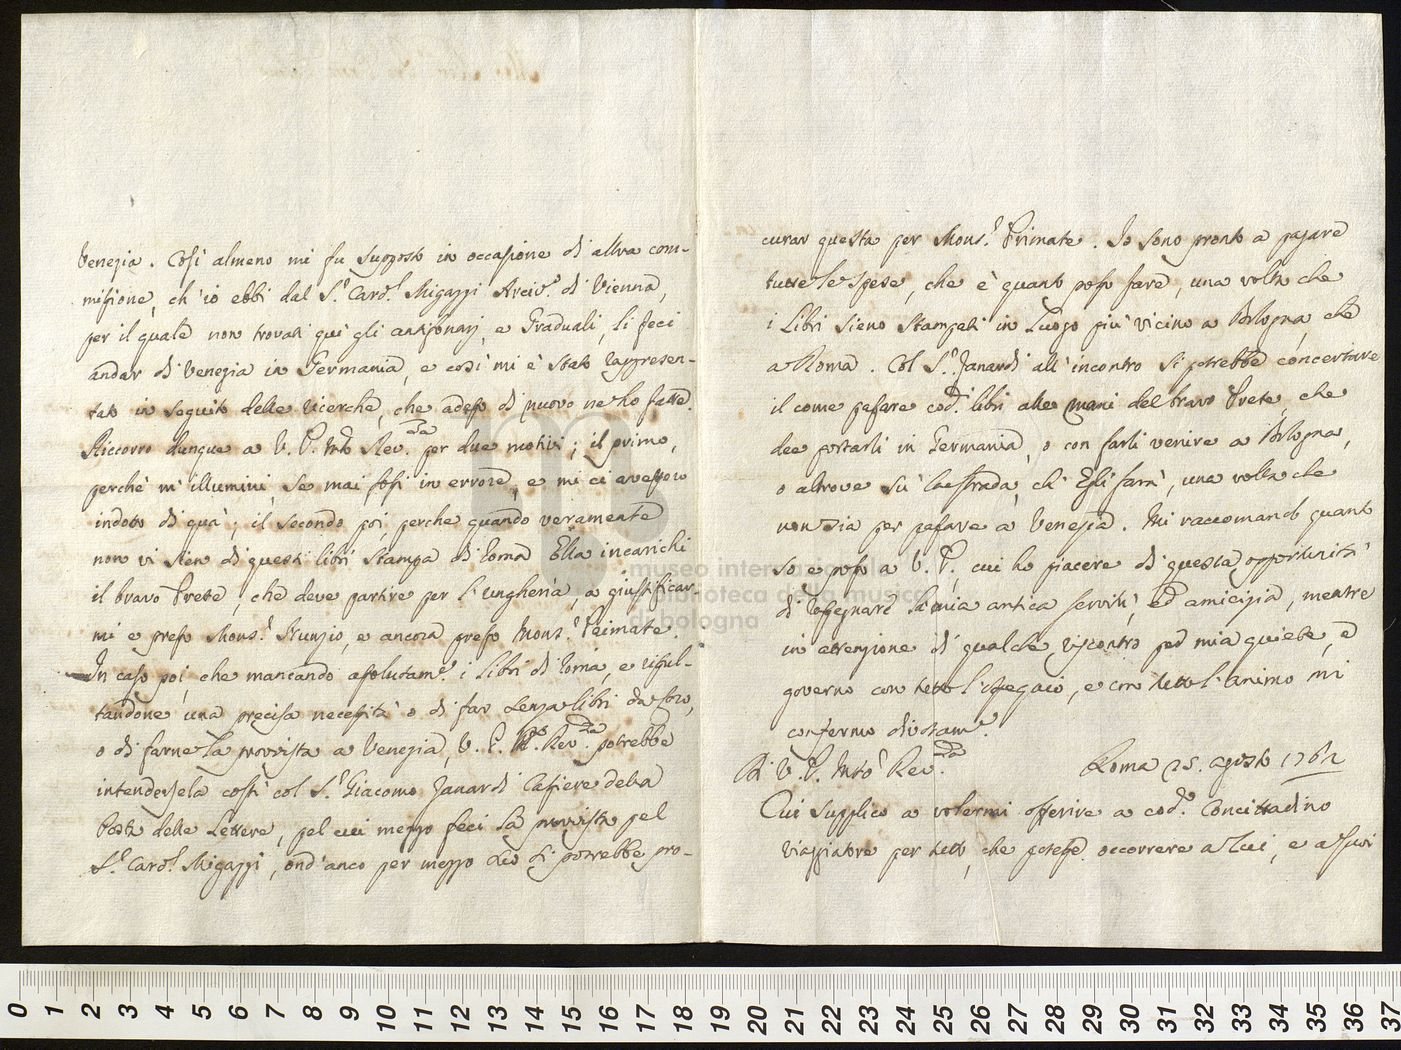 Venezia. Così almeno mi fu supposto in occasione di altra com-
missione, ch'io ebbi dal S.r Card.l Migazzi Arciv.o di Vienna,
per il quale non trovati quì gli antifonarj, e Graduali, li feci
andar di Venezia in Germania, e così mi è stato rappresen-
tato in seguito delle ricerche, che adesso di nuovo ne ho fatte.
Riccorro dunque a V. P. Mto Rev.da per due motivi; il primo,
perchè m'illumini, se mai fossi in errore, e mi ci avessero
indotto di quà; il secondo poi, perche quando veramente
non vi sien di questi libri stampa di Roma Ella incarichi
il bravo Prete, che deve partire per l'Ungheria, a giustificar-
mi e presso Mons.r Nunzio, e ancora presso Mons.r Primate.
In caso poi, che mancando assolutam.e i libri di Roma, e risul-
tandone una precisa necessità o di far senza libri da Coro,
o di farne la provvista a Venezia, V. P. M.to Rev.da potrebbe
intendersela costì col S.r Giacomo Zanardi Cassiere della
Posta delle Lettere, pel cui mezzo feci la provvista pel
S.r Card.l Migazzi, ond'anco per mezzo dio si potrebbe pro-
curar questa per Mons.r Primate. Io sono pronto a pagare
tutte le spese, che è quanto posso fare, una volta che
i Libri sieno stampati in luogo più vicino a Bologna, che
a Roma. Col S.r Zanardi all'incontro si potrebbe concertare
il come passare cod.i libri alle mani del bravo Prete, che
dee portarli in Germania, o con farli venire a Bologna,
o altrove sù la strada, ch'Egli farà, una volta che
non sia per passare a Venezia. Mi raccomando quanto
so e posso a V. P., cui ho piacere di questa opportunità
di rassegnare la mia antica servitù, ed amicizia, mentre
in attenzione di qualche riscontro per mia quiete, e
governo con tutto l'ossequio, e con tutto l'animo mi
confermo divotam.e
Di V. P. Mto Rev.da
Roma 25. agosto 1762
Cui supplico a volermi offerire a cod.o Concittadino
viaggiatore per tutto, che potesse occorrere a Lui, e a suoi
museo internazionale
e biblioteca della musica
di bologna
0 1 2 3 4 5 6 7 8 9 10 11 12 13 14 15 16 17 18 19 20 21 22 23 24 25 26 27 28 29 30 31 32 33 34 35 36 37